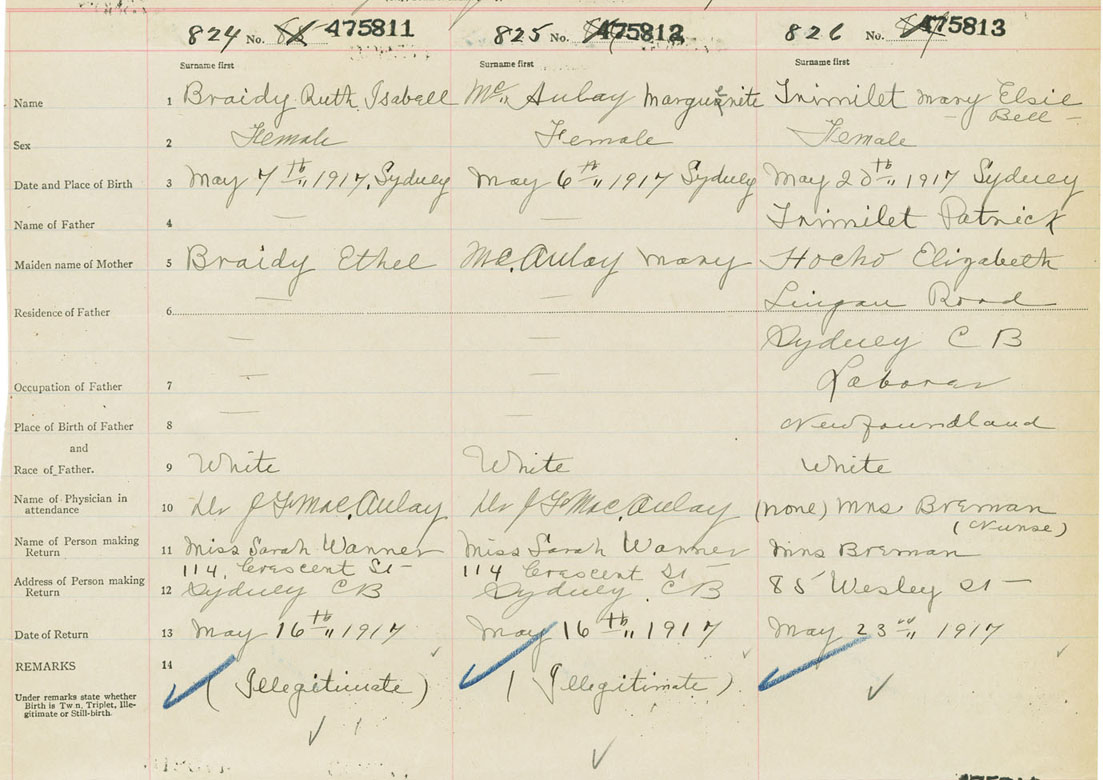 824 No. 475811
825 No. 475812
826 No. 475813
Surname first Surname first Surname first
Name 1 Braidy Ruth Isabell Mc Aulay Marguerite Trimilet Mary Elsie
- Bell -
Sex 2 Female Female Female
Date and Place of Birth 3 May 7th 1917, Sydney May 6th 1917 Sydney May 20th 1917 Sydney
Name of Father 4 — — Trimilet Patrick
Maiden name of Mother 5 Braidy Ethel Mc. Aulay Mary Hocko Elizabeth
— — Lingan Road
Residence of Father 6
— — Sydney C B
Occupation of Father 7 — — Laborer
Place of Birth of Father 8 — — Newfoundland
and
Race of Father. 9 White White White
Name of Physician in
attendance 10 Dr J F MacAulay Dr J F MacAulay (none) Mrs Brennan
(Nurse)
Name of Person making
Return 11 Miss Sarah Wanner Miss Sarah Wanner Mrs Brennan
114, Crescent St— 114 Crescent St—
Address of Person making
Return 12 Sydney CB Sydney CB 85 Wesley St—
Date of Return 13 May 16th 1917 May 16th 1917 May 23rd 1917
REMARKS 14
(Illegitimate) (Illegitimate)
Under remarks state whether
Birth is Twin, Triplet, Ille-
gitimate or Still-birth.